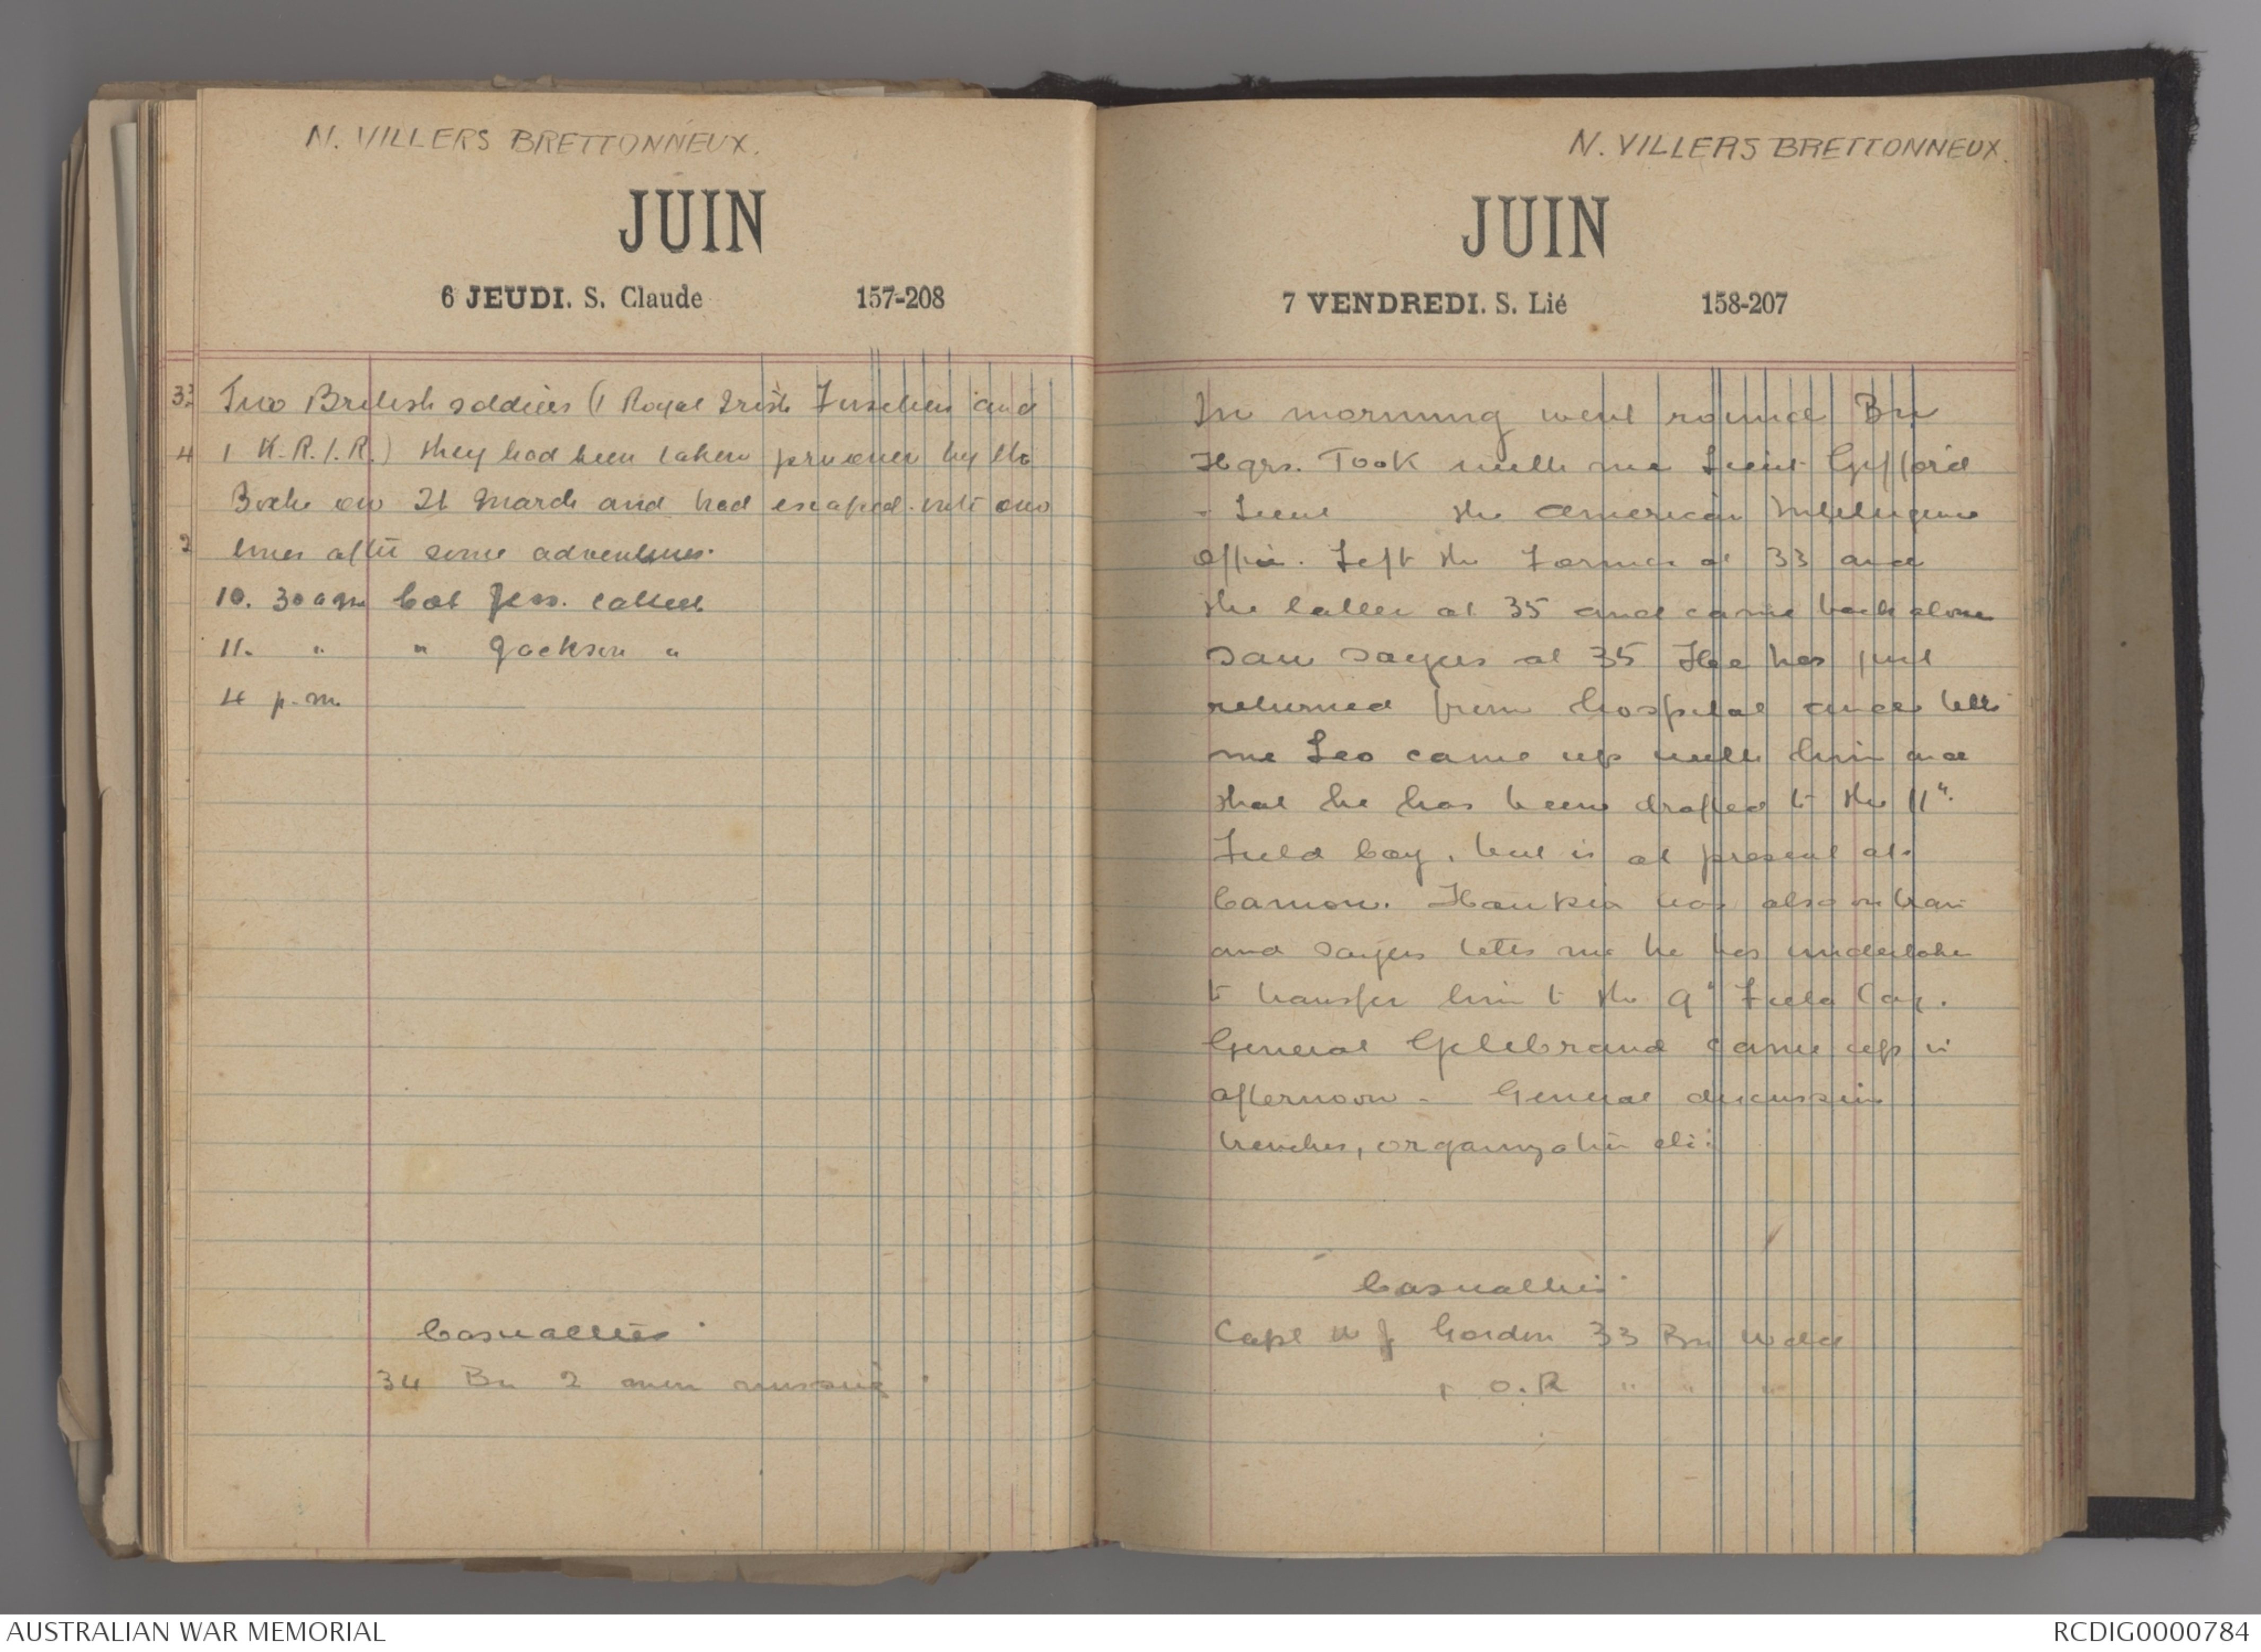 N. VILLERS BRETTONNEUX.
JUIN
6 JEUDI. S. Claude 157-208
33 Two British soldiers (1 Royal Irish Fusiliers and
4 1 K.R.I.R.) they had been taken prisoner by the
Boche on 21 March and had escaped into our
2 lines after some adventures.
10. 30 am Col Jess. called
11. " " Jackson "
4 p.m.
Casualties
34 Bn 2 men missing
N. VILLERS BRETTONNEUX.
JUIN
7 VENDREDI. S. Lié 158-207
In morning went round Bn
Hqrs. Took with me Lieut Gifford
- Lieut the American Intelligence
Offic. Left the former at 33 and
the latter at 35 and came back alone
Saw Sayers at 35 He has just
returned from hospital and tells
me Leo came up with him and
that he has been drafted to the 11"
Field Coy, but is at present at
Camon. was also on train
and Sayers tells me he has undertaken
to transfer him to the 9" Field Coy.
General Gellibrand came up in
afternoon - General discussion
trenches, organization etc:
Casualties
Capt W J Gordon 33 Bn wded
1 O.R " " "
AUSTRALIAN WAR MEMORIAL
RCDIG0000784